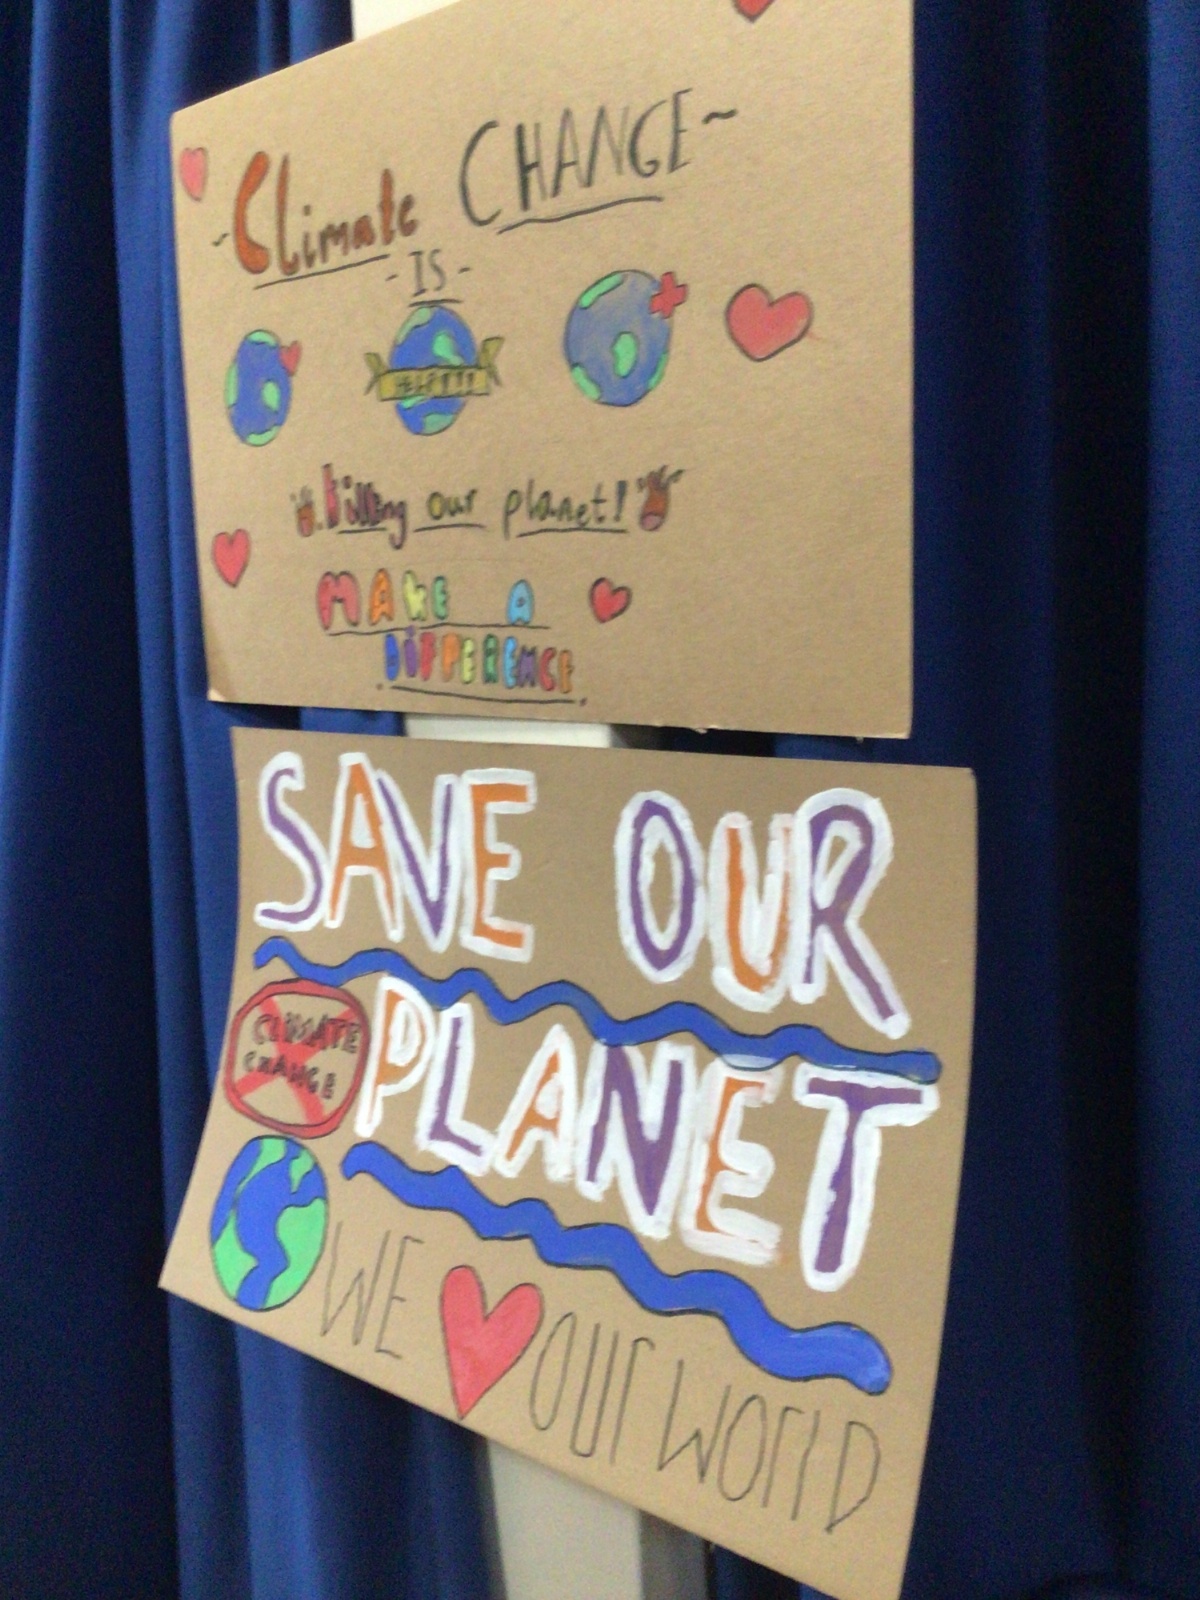 ~Climate CHANGE~
-IS-
HELP!!!
killing our planet!
MAKE A
DIFFERENCE
SAVE OUR
PLANET
CLIMATE
CHANGE
WE OUR WORLD